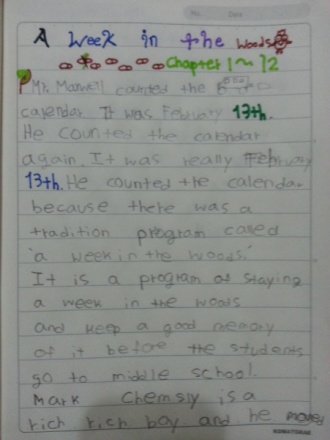 No. Date
A Week in the Woods
Chapter 1~12
Mr. Maxwell counted the
calendar. It was February 13th.
He counted the calendar
again. It was really February
13th. He counted the calendar
because there was a
tradition program called
"a week in the woods."
It is a program of staying
a week in the woods
and keep a good memory
of it before the students
go to middle school.
Mark Chemsly is a
rich rich boy and he moved